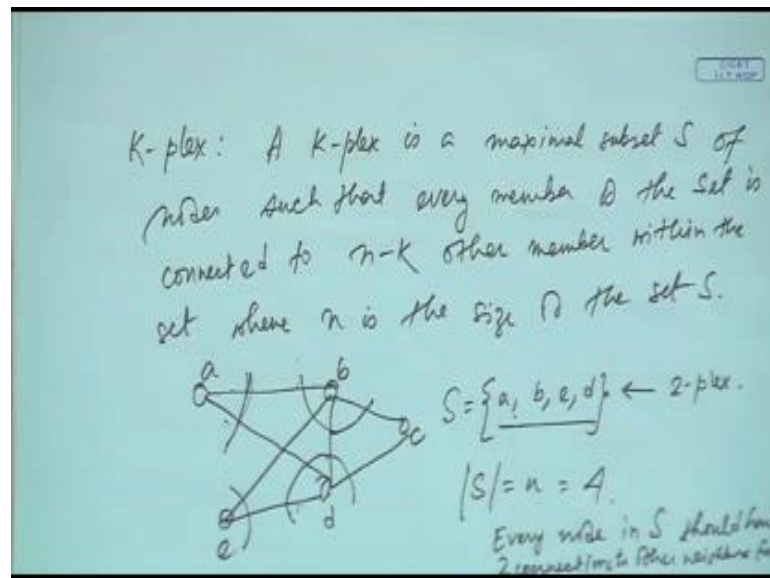 K-plex: A K-plex is a maximal subset S of
nodes such that every member of the set is
connected to n-K other member within the
set where n is the size of the set S.
a b
c
d
e
S = {a, b, e, d} ← 2-plex.
|S| = n = 4.
Every node in S should
2 connections to other